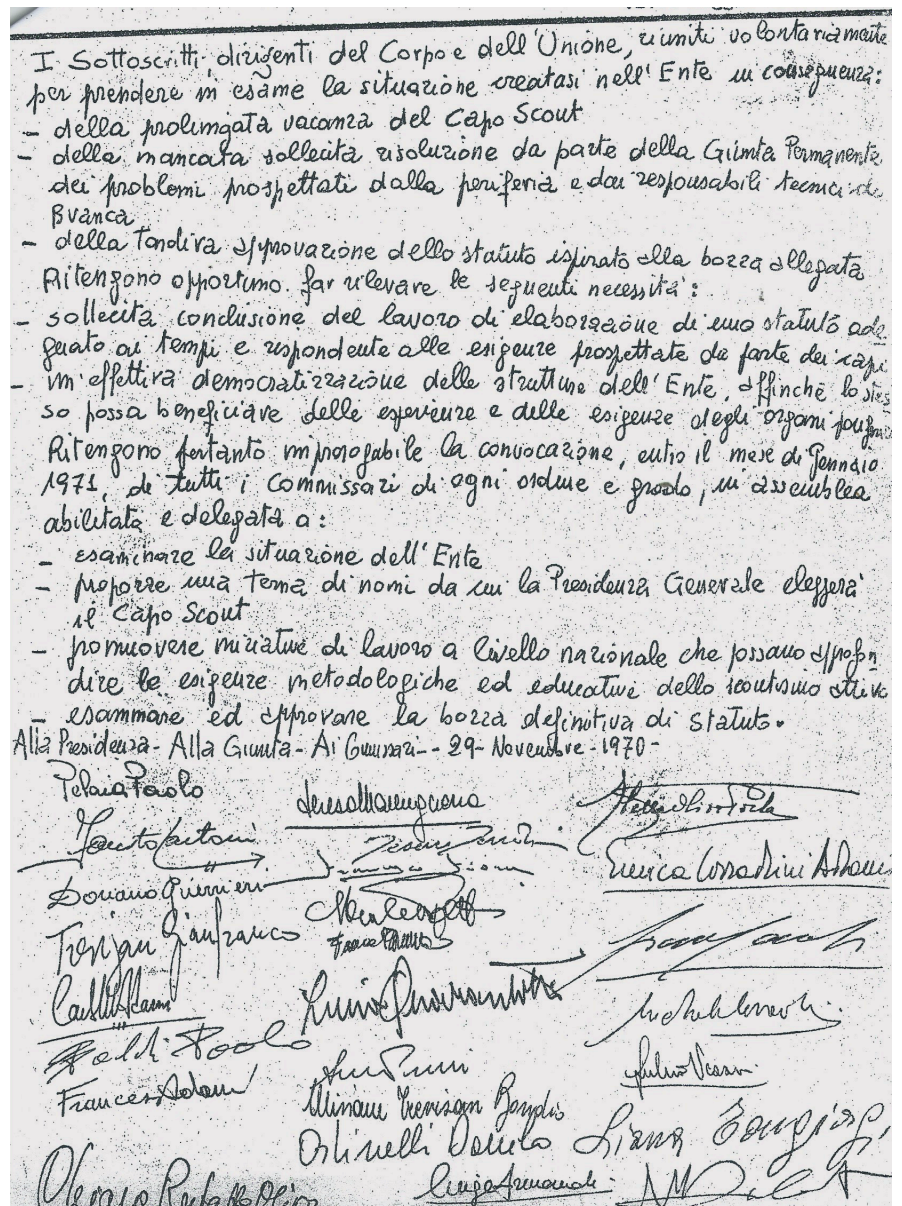 I Sottoscritti, dirigenti del Corpo e dell'Unione, riuniti volontariamente
per prendere in esame la situazione creatasi nell'Ente in conseguenza:
- della prolungata vacanza del Capo Scout
- della mancata sollecita risoluzione da parte della Giunta Permanente
dei problemi prospettati dalla periferia e dai responsabili tecnici di
Branca
- della tardiva approvazione dello statuto ispirato alla bozza allegata
Ritengono opportuno far rilevare le seguenti necessità:
- sollecita conclusione del lavoro di elaborazione di uno statuto ade
guato ai tempi e rispondente alle esigenze prospettate da parte dei capi
- un'effettiva democratizzazione delle strutture dell'Ente, affinché lo stes
so possa beneficiare delle esperienze e delle esigenze degli organi
Ritengono pertanto improrogabile la convocazione, entro il mese di Gennaio
1971, di tutti i Commissari di ogni ordine e grado, in assemblea
abilitata e delegata a:
- esaminare la situazione dell'Ente
- proporre una terna di nomi da cui la Presidenza Generale eleggerà
il Capo Scout
- promuovere iniziative di lavoro a livello nazionale che possano approfon
dire le esigenze metodologiche ed educative dello scoutismo attivo
- esaminare ed approvare la bozza definitiva di statuto.
Alla Presidenza - Alla Giunta - Ai -- 29 - Novembre - 1970 -
Paolo
Doriano Guerrieri
Enrica Corradini Adami
Trevisan Gianfranco
Franco
Luisa Quarantotto
Baldi Paolo
Francesco Adami
Miriam Trevisan
Ortinelli Danilo
Liana Bongiorgi
Luigi